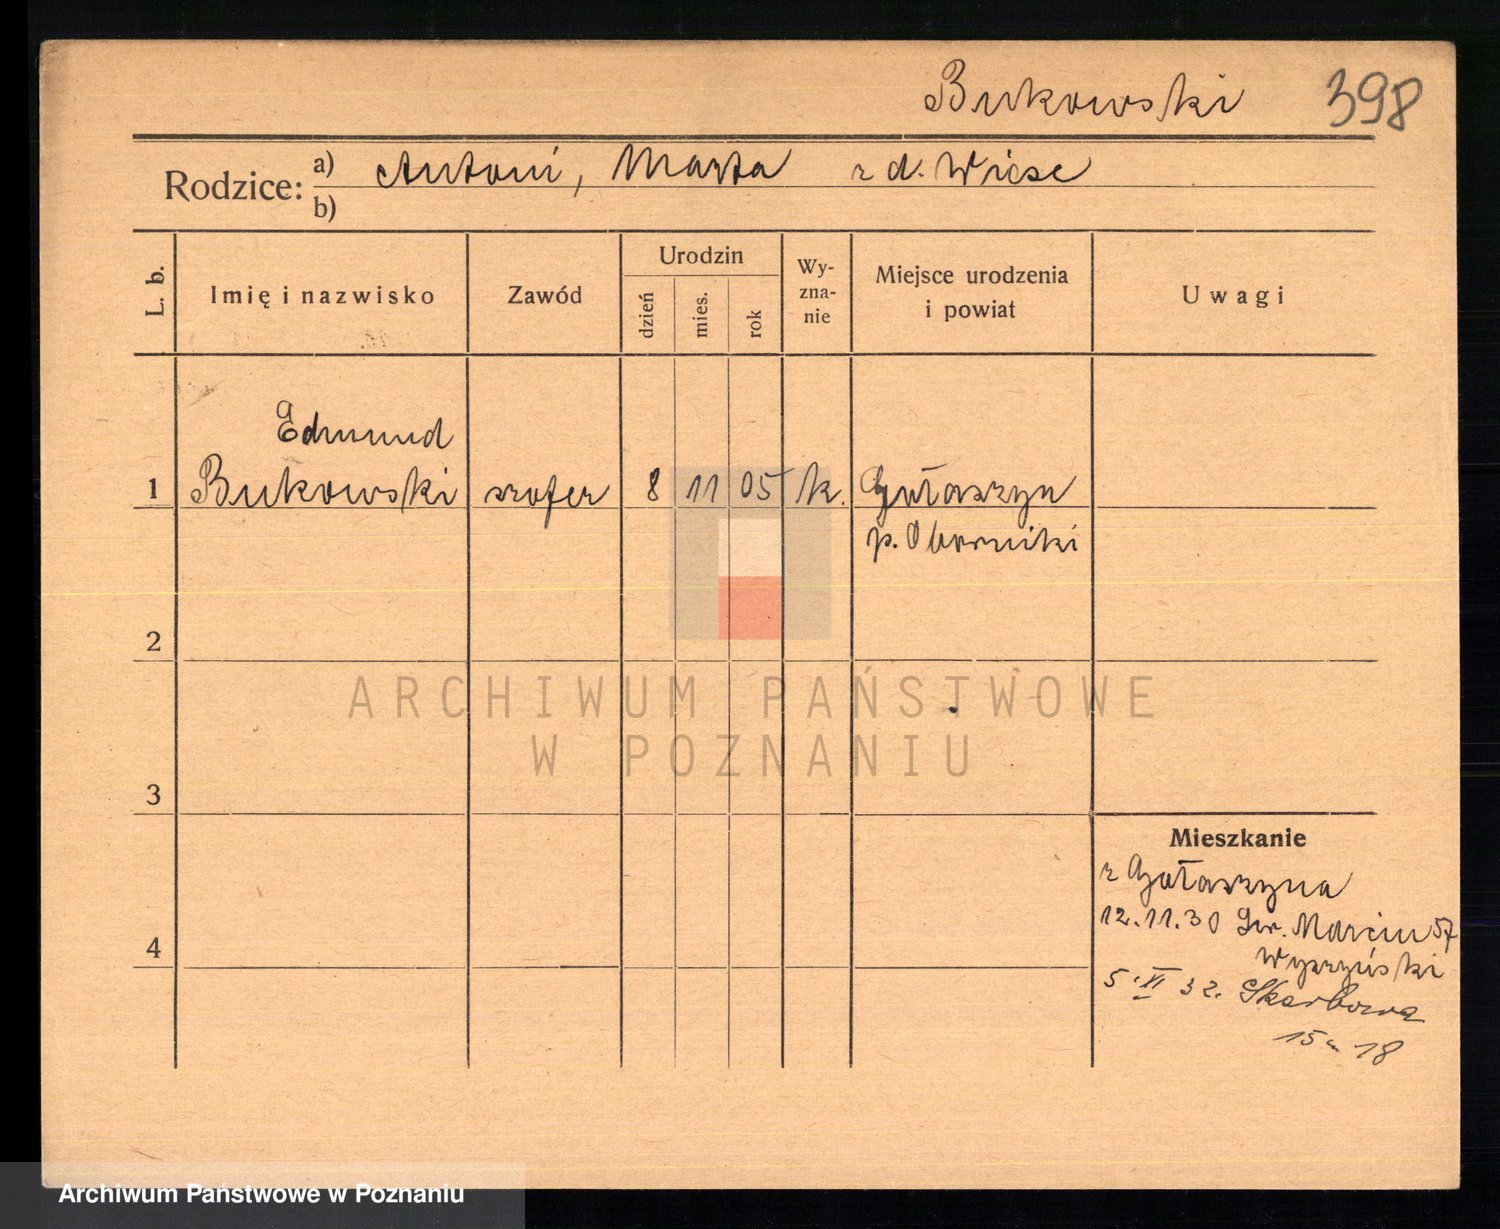 Bukowski 398
Rodzice: a) Antoni, Marta z d. Wiese
b)
L. b.
Imię i nazwisko
Zawód
Urodzin
dzień
mies.
rok
Wy-
zna-
nie
Miejsce urodzenia
i powiat
Uwagi
Edmund
1 Bukowski szofer 8 11 05 k. Gołaszyn
p. Oborniki
2
ARCHIWUM PAŃSTWOWE
W POZNANIU
3
Mieszkanie
z Gołaszyna
12.11.30 Św. Marcin 57
Wyrzyński
5.XI 32. Skarbowa
15 m 18
4
Archiwum Państwowe w Poznaniu